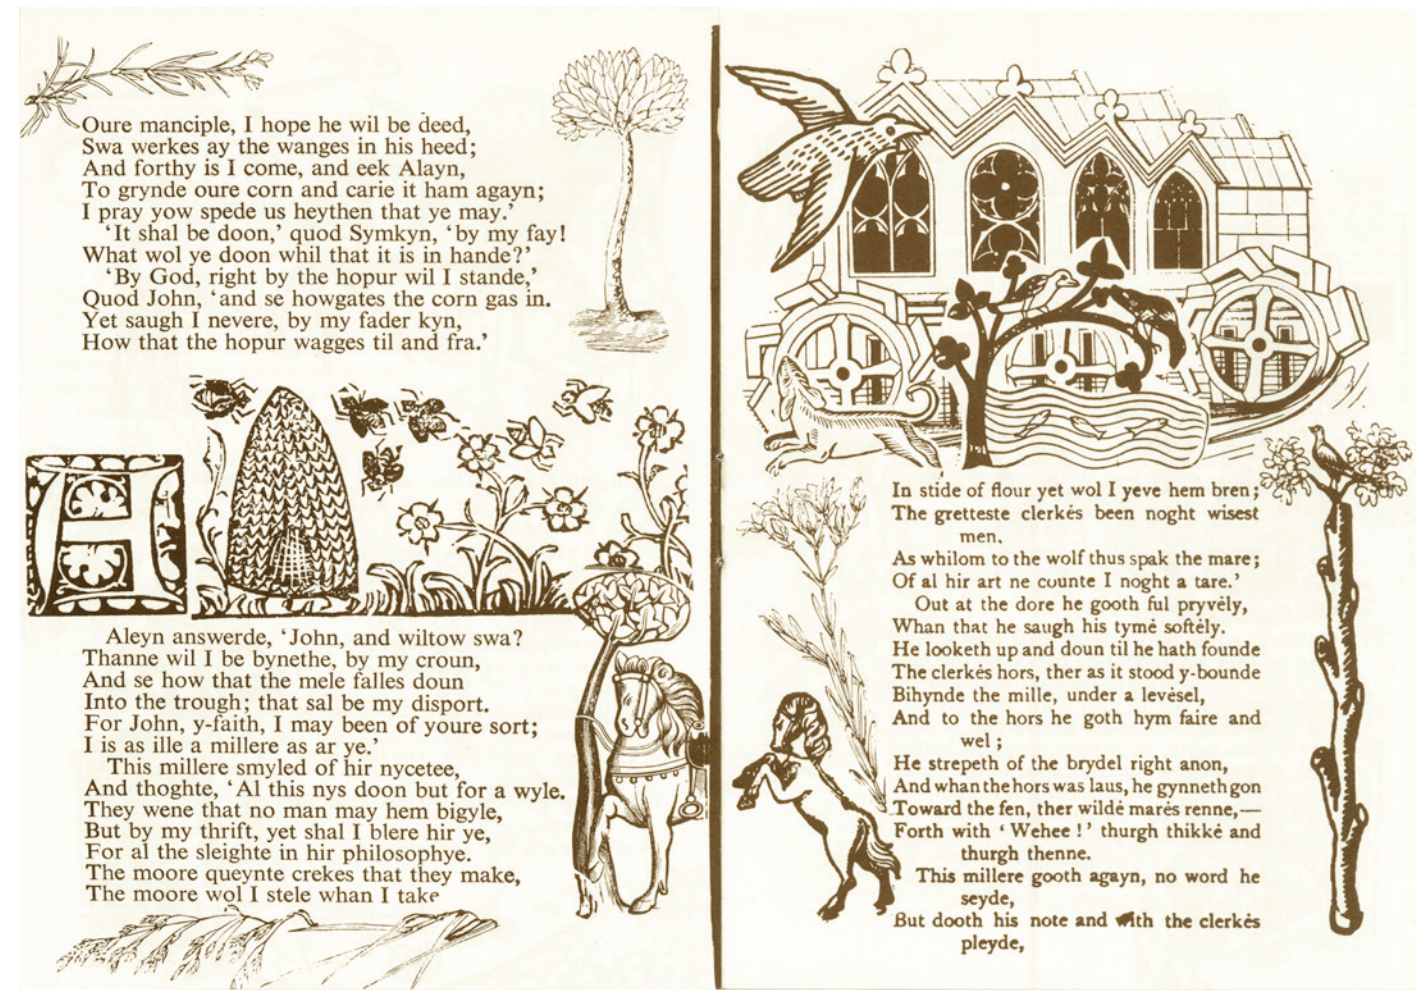 Oure manciple, I hope he wil be deed,
Swa werkes ay the wanges in his heed;
And forthy is I come, and eek Alayn,
To grynde oure corn and carie it ham agayn;
I pray yow spede us heythen that ye may.’
‘It shal be doon,’ quod Symkyn, ‘by my fay!
What wol ye doon whil that it is in hande?’
‘By God, right by the hopur wil I stande,’
Quod John, ‘and se howgates the corn gas in.
Yet saugh I nevere, by my fader kyn,
How that the hopur wagges til and fra.’
H
Aleyn answerde, ‘John, and wiltow swa?
Thanne wil I be bynethe, by my croun,
And se how that the mele falles doun
Into the trough; that sal be my disport.
For John, y-faith, I may been of youre sort;
I is as ille a millere as ar ye.’
This millere smyled of hir nycetee,
And thoghte, ‘Al this nys doon but for a wyle.
They wene that no man may hem bigyle,
But by my thrift, yet shal I blere hir ye,
For al the sleighte in hir philosophye.
The moore queynte crekes that they make,
The moore wol I stele whan I take
In stide of flour yet wol I yeve hem bren;
The gretteste clerkés been noght wisest
men.
As whilom to the wolf thus spak the mare;
Of al hir art ne counte I noght a tare.’
Out at the dore he gooth ful pryvély,
Whan that he saugh his tymé softély.
He looketh up and doun til he hath founde
The clerkés hors, ther as it stood y-bounde
Bihynde the mille, under a levésel,
And to the hors he goth hym faire and
wel;
He strepeth of the brydel right anon,
And whan the hors was laus, he gynneth gon
Toward the fen, ther wildé marés renne,—
Forth with ‘Wehee!’ thurgh thikké and
thurgh thenne.
This millere gooth agayn, no word he
seyde,
But dooth his note and with the clerkés
pleyde,